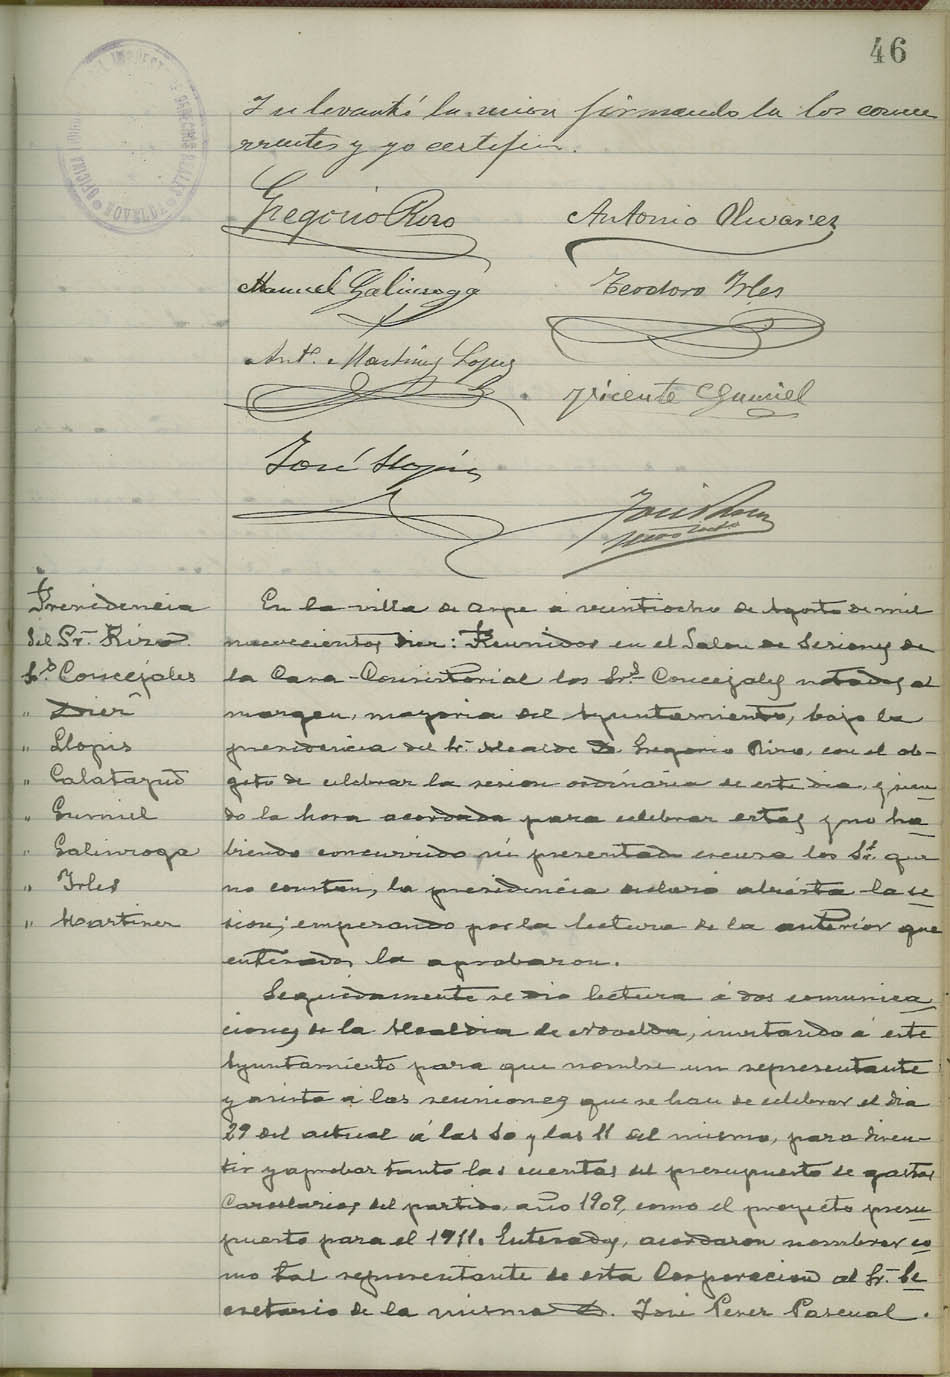 46
Y se levantó la sesion firmando la los concu
rrentes y yo certifico.
Gregorio Rizo
Antonio Olivares
Manuel Galinsoga
Teodoro Irles
Ant.º Martinez Lopez
Vicente Gumiel
José Llopis
José Perez
Presidencia
del Sr. Rizo
Srs Concejales
" Diez
" Llopis
" Calatayud
" Gumiel
" Galinsoga
" Irles
" Martinez
En la villa de Aspe á veintiocho de Agosto de mil
novecientos diez: Reunidos en el Salon de Sesiones de
la Casa-Consistorial los Srs. Concejales notados al
margen, mayoria del Ayuntamiento, bajo la
presidencia del Sr. Alcalde D. Gregorio Rizo, con el ob-
geto de celebrar la sesion ordinaria de este dia, y sien-
do la hora acordada para celebrar estas y no ha-
biendo concurrido ni presentado escusa los Srs. que
no constan, la presidencia declaró abierta la se-
sion; empezando por la lectura de la anterior que
enterados la aprobaron.
Seguidamente se dió lectura á dos comunica-
ciones de la Alcaldia de Novelda, invitando á este
Ayuntamiento para que nombre un representante
y asista á las reuniones que se han de celebrar el dia
29 del actual á las 10 y las 11 del mismo, para discu-
tir y aprobar tanto las cuentas del presupuesto de gastos
Carcelarios del partido, año 1909, como el proyecto presu-
puesto para el 1911. Enterados, acordaron nombrar co-
mo tal representante de esta Corporacion al Sr. Se-
cretario de la misma D. José Perez Pascual.